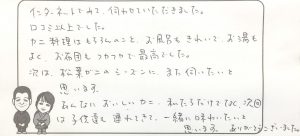 インターネットでみて、伺わせていただきました。
口コミ以上でした。
カニ料理はもちろんのこと、お風呂もきれいで、お湯も
よく、お布団もフカフカで最高でした。
次は、松葉ガニのシーズンに、また伺いたいと
思います。
みんなにおいしいカニ、私たちだけでなく、次回
は子供達も連れてきて、一緒に味わいたいと
思います。ありがとうございました。